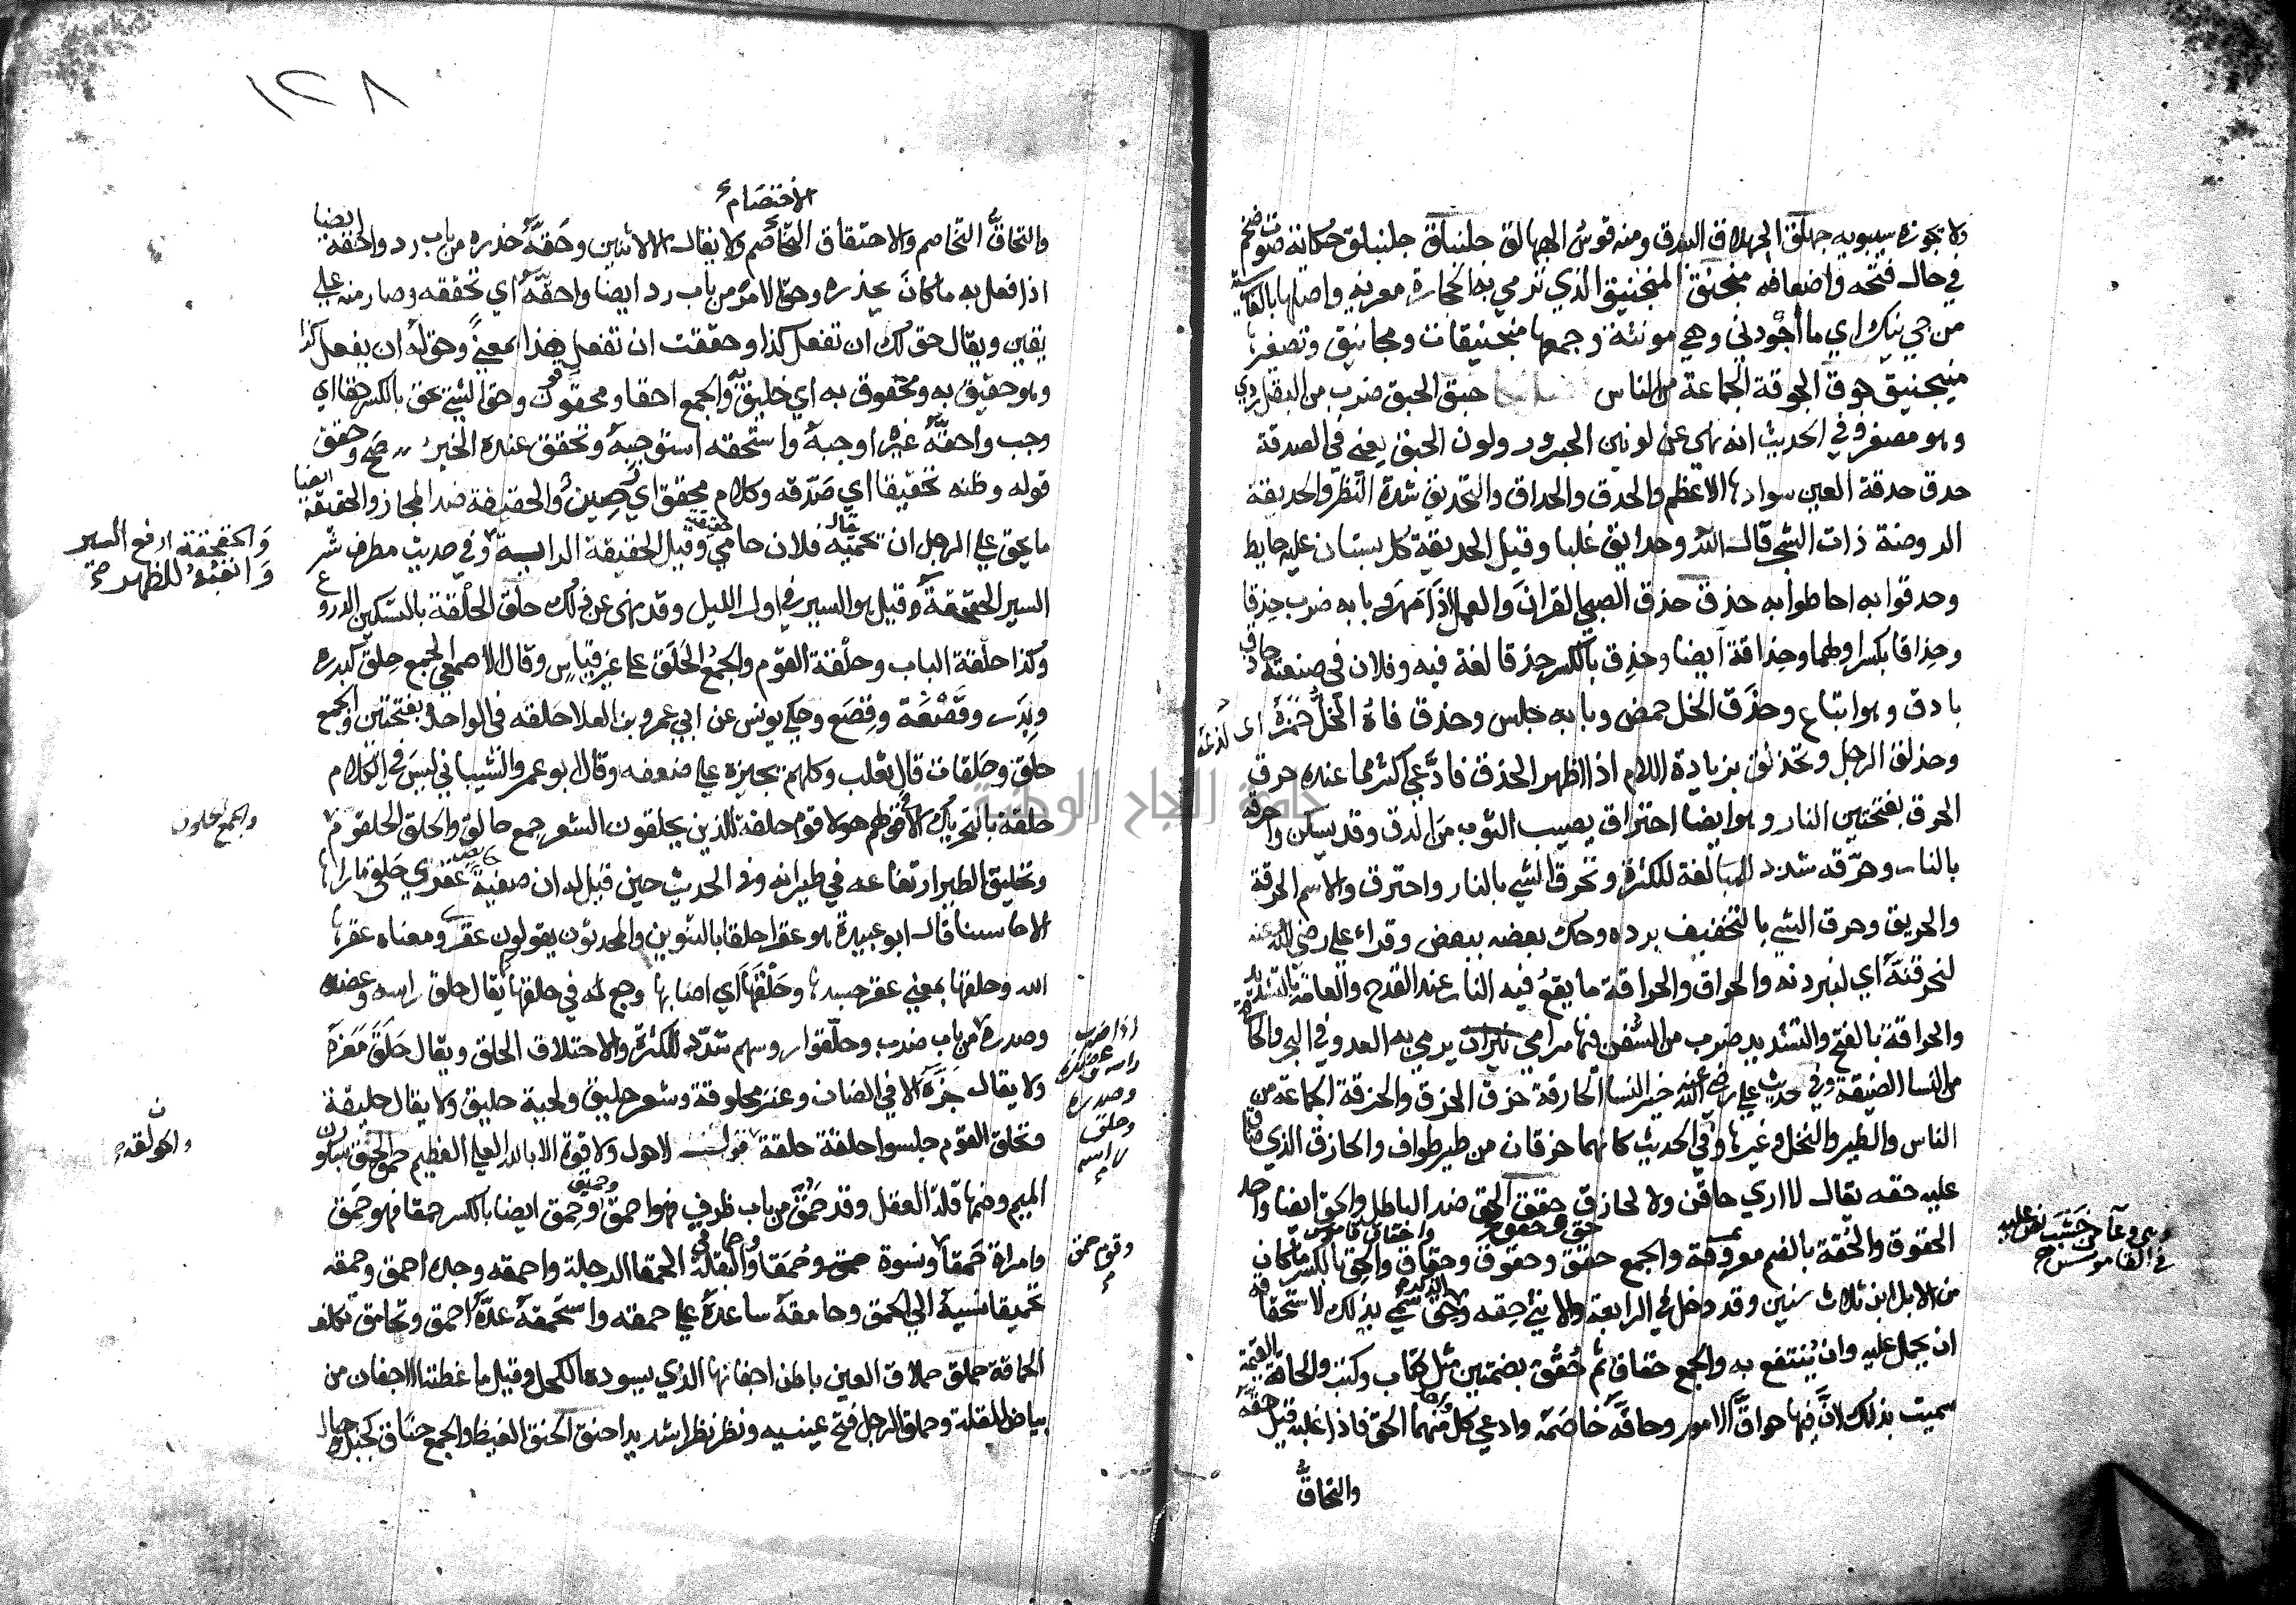 ولا يجوزه سيبويه جهلق الجهلاق البندق ومنه قوس الجهالق جلنبلق جلنبلق حكاية صوت ضخم
في حال فتحه واضعافه منجنق المنجنيق الذي ترمي به الحجارة معربة واصلها بالفارسية
من جي نيك اي ما اجودني وهي مونثة وجمعها منجنيقات ومجانيق وتصغيرها
منيجنيق جوق الجوقة الجماعة من الناس حبق الحبق ضرب من الدقل ردي
وهو مصغر وفي الحديث انه نهى عن لونين الجعرور ولون الحبيق يعني في الصدقة
حدق حدقة العين سوادها الاعظم والحدق والحداق والتحديق شدة النظر والحديقة
الروضة ذات الشجر قال الله وحدايق غلبا وقيل الحديقة كل بستان عليه حايط
وحدقوا به احاطوا به حذق حذق الصبي القران والعمل اذا مهر وبابه ضرب حذقا
وحذاقا بكسر اولهما وحذاقة ايضا وحذق بالكسر حذقا لغة فيه وفلان في صنعته حاذق
باذق وهو اتباع وحذق الخل حمض وبابه جلس وحذق فاه الخل حمزه اى لذعه
وحذلق الرجل وتحذلق بزيادة اللام اذا اظهر الحذق فادعى اكثر مما عنده حرق
الحرق بفتحتين النار وهو ايضا احتراق يصيب الثوب من الدق وقد يسكن واحرقه
بالنار وحرقه شدد للمبالغة للكثرة وتحرق الشي بالنار واحترق والاسم الحرقة
والحريق وحرق الشي بالتخفيف برده وحك بعضه ببعض وقراء علي رضي الله عنه
لنحرقنه اي لنبردنه والحراق والحراقة ما يقع فيه النار عند القدح والعامة بالتشديد
والحراقة بالفتح والتشديد ضرب من السفن فيها مرامي نيران يرمي به العدو في البحر والحارقة
من النسا الضيقة وفي حديث علي رضي الله عنه خير النسا الحارقة حزق الحزق والحزقة الجماعة من
الناس والطير والنخل وغيرها وفي الحديث كانهما حزقان من طير طواف والحازق الذي ضاق
عليه خفه يقال لا راي حاقن ولا لحازق حقق الحق ضد الباطل والحق ايضا واحد
الحقوق والحقة بالضم معروفة والجمع حقق وحقوق وحقاق والحق بالكسر ما كان
من الابل ابن ثلاث سنين وقد دخل في الرابعة والانثي حقه وحق سمي بذلك لاستحقاقه
ان يحمل عليه وان ينتفع به والجمع حقاق ثم حقق بضمتين مثل كتاب وكتب والحاقة القيمة
سميت بذلك لان فيها حواق الامور وحاقه خاصمه وادعي كل منهما الحق فاذا غلبه قيل حقه
والتحاق
وهى وعآ من خشب نص عليه
في القاموس
١٢٨
الاختصام
والتحاق التخاصم والاحتقاق التخاصم ولا يقال الا لاثنين وحقه حذره من باب رد واحقه ايضا
اذا فعل به ما كان يحذره وحق الامر من باب رد ايضا واحقه اي تحققه وصار منه على
يقين ويقال حق لك ان تفعل كذا وحققت ان تفعل هذا بمعنى وحق له ان يفعل كذا
وهو حقيق به ومحقوق به اي خليق به والجمع احقا ومحقوقون وحق الشي يحق بالكسر حقا اي
وجب واحقه غيره اوجبه واستحقه استوجبه وتحقق عنده الخبر صح وحقق
قوله وظنه تحقيقا اي صدقه وكلام محقق اي رصين والحقيقة ضد المجاز والحقيقة ايضا
ما يحق على الرجل ان يحميه يقال فلان حامي حقيقة وقيل الحقيقة الراية وفي حديث مطرف شر
السير الحقحقة وقيل هو السير في اول الليل وقد نهى عن ذلك حلق الحلقة بالتسكين الدروع
وكذا حلقة الباب وحلقة القوم والجمع الحلق على غير قياس وقال الاصمعي الجمع حلق كبدرة
وبدر وقصعة وقصع وحكي يونس عن ابي عمرو بن العلا حلقه في الواحد بفتحتين والجمع
حلق وحلقات قال ثعلب وكلهم يجيزه على ضعفه وقال ابو عمرو الشيباني ليس في الكلام
حلقة بالتحريك الا قولهم هولا قوم حلقة للذين يحلقون الشعر جمع حالق والحلق الحلقوم
وتحليق الطير ارتفاعه في طيرانه وفي الحديث حين قيل له ان صفية عقري حلقي ما اراها
الا حابستنا قال ابو عبيدة هو عقرا حلقا بالتنوين والمحدثون يقولون عقرى ومعناه عقرها
الله وحلقها بمعني عقر جسدها وحلقها اي اصابها وجع له في حلقها يقال حلق راسه وعضده
وصدره من باب ضرب وحلقوا روسهم شدد للكثرة والاحتلاق الحلق ويقال حلق معزه
ولا يقال جزه الا في الضان وعنز محلوقة وشعر حليق ولحية حليق ولا يقال حليقة
وتحلق القوم جلسوا حلقة حلقة لاحول ولا قوة الا بالله العلي العظيم حمق الحمق بسكون
الميم وضمها قلة العقل وقد حمق من باب ظرف فهو احمق وحمق ايضا بالكسر حمقا فهو حمق
وامراة حمقا ونسوة حمق وحمقا والبقلة الحمقا الرجلة واحمقه وجده احمق وحمقه
تحميقا نسبه الي الحمق وحامقه ساعده على حمقه واستحمقه عده احمق وتحامق تكلف
الحماقة حملق حملاق العين باطن اجفانها الذي يسوده الكحل وقيل ما غطته الاجفان من
بياض المقلة وحملق الرجل فتح عينيه ونظر نظرا شديدا حنق الحنق الغيظ والجمع حناق كجبل وجبال
والحقحقة ارفع السير
واتعبه للظهر
اذا ضرب
راسه
وصدره
وحلق
راسه
وقوم حمق
جامعة النجاح الوطنية